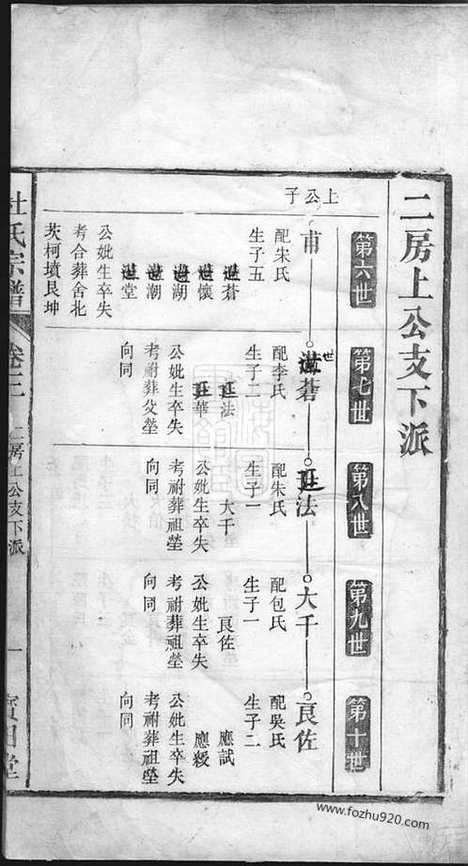 二房上公支下派
第六世
第七世
第八世
第九世
第十世
上公子
甫
配朱氏
生子五
世蒼
世懷
世湖
世潮
世堂
公妣生卒失
考合葬舍北
茨柯墳艮坤
世蒼
配李氏
生子二
廷法
廷華
公妣生卒失
考祔葬父塋
向同
廷法
配朱氏
生子一
大千
公妣生卒失
考祔葬祖塋
向同
大千
配包氏
生子一
良佐
公妣生卒失
考祔葬祖塋
向同
良佐
配吳氏
生子二
應試
應稷
公妣生卒失
考祔葬祖塋
向同
杜氏宗譜
卷三
二房上公支下派
一
www.fozhu920.com